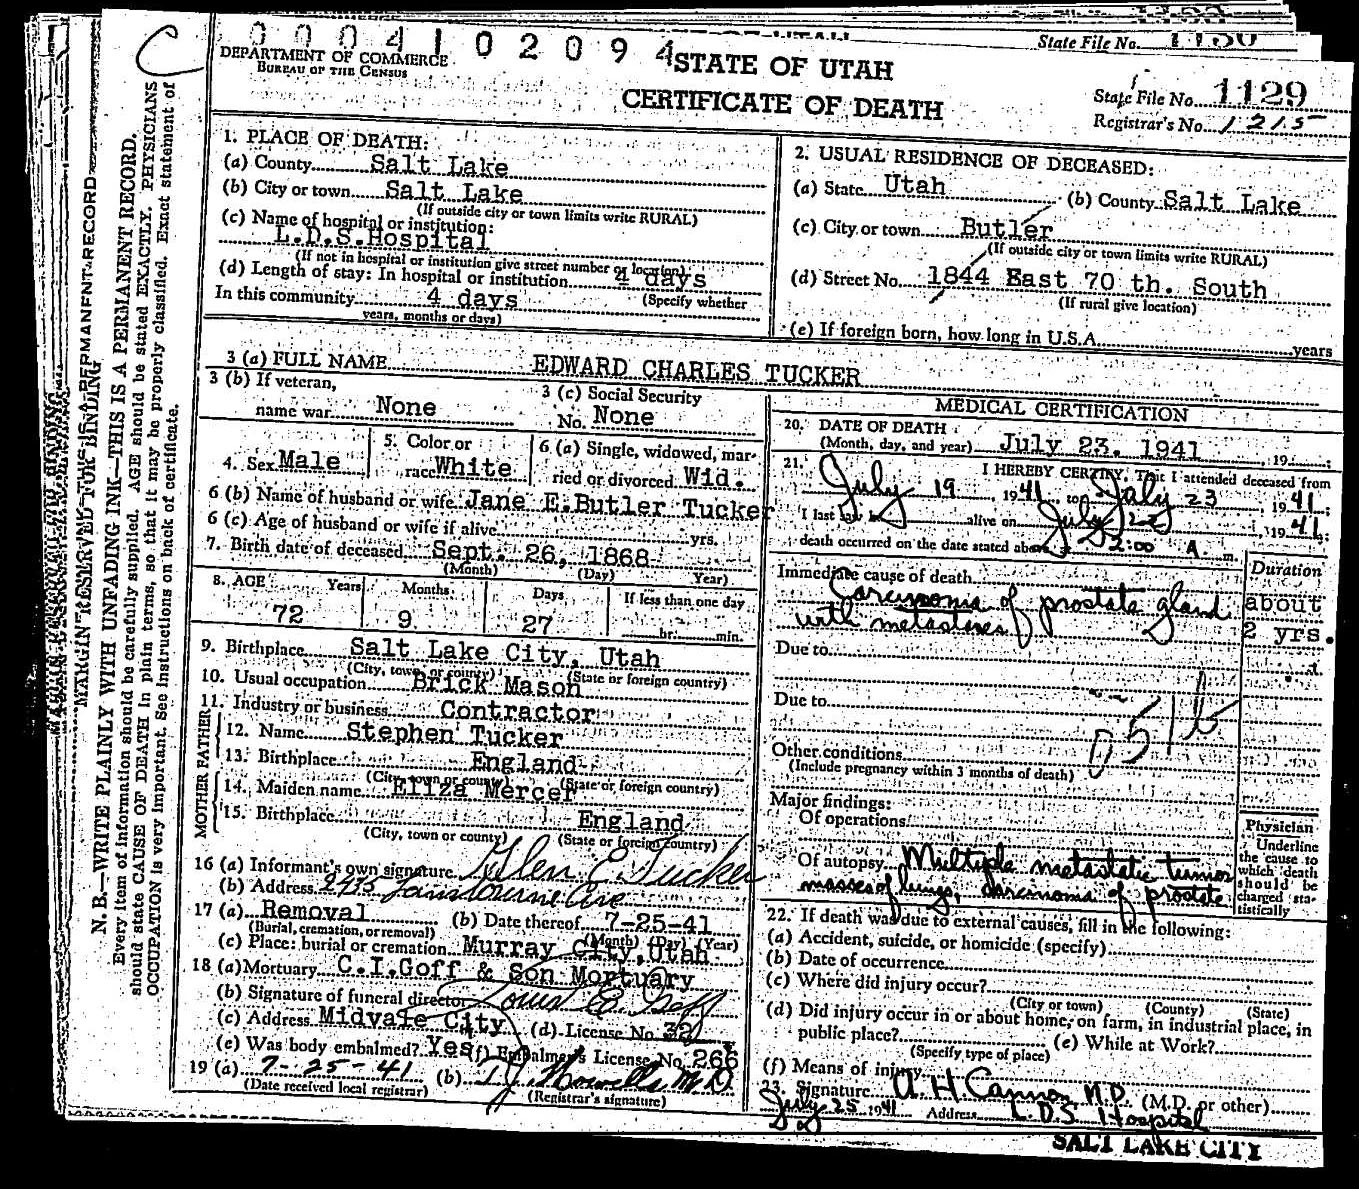 0004102094
DEPARTMENT OF COMMERCE
BUREAU OF THE CENSUS
STATE OF UTAH
CERTIFICATE OF DEATH
State File No. 1130
State File No. 1129
Registrar's No. 1215
MARGIN RESERVED FOR BINDING
N. B.—WRITE PLAINLY WITH UNFADING INK—THIS IS A PERMANENT RECORD.
Every item of information should be carefully supplied. AGE should be stated EXACTLY. PHYSICIANS
should state CAUSE OF DEATH in plain terms, so that it may be properly classified. Exact statement of
OCCUPATION is very important. See instructions on back of certificate.
1. PLACE OF DEATH:
(a) County Salt Lake
(b) City or town Salt Lake
(If outside city or town limits write RURAL)
(c) Name of hospital or institution:
L.D.S.Hospital
(If not in hospital or institution give street number or location)
(d) Length of stay: In hospital or institution 4 days
(Specify whether
In this community 4 days
years, months or days)
2. USUAL RESIDENCE OF DECEASED:
(a) State Utah (b) County Salt Lake
(c) City or town Butler
(If outside city or town limits write RURAL)
(d) Street No. 1844 East 70 th. South
(If rural give location)
(e) If foreign born, how long in U.S.A. years
3 (a) FULL NAME EDWARD CHARLES TUCKER
3 (b) If veteran,
name war None
3 (c) Social Security
No. None
4. Sex Male
5. Color or
race White
6 (a) Single, widowed, mar-
ried or divorced Wid.
6 (b) Name of husband or wife Jane E.Butler Tucker
6 (c) Age of husband or wife if alive yrs.
7. Birth date of deceased Sept. 26, 1868
(Month) (Day) Year)
8. AGE Years Months Days If less than one day
72 9 27 hr. min.
9. Birthplace Salt Lake City, Utah
(City, town or county) (State or foreign country)
10. Usual occupation Brick Mason
11. Industry or business Contractor
FATHER
12. Name Stephen Tucker
13. Birthplace England
(City, town or county) (State or foreign country)
MOTHER
14. Maiden name Eliza Mercer
15. Birthplace England
(City, town or county) (State or foreign country)
16 (a) Informant's own signature Glen E. Tucker
(b) Address Ave
17 (a) Removal (b) Date thereof 7-25-41
(Burial, cremation, or removal) (Month) (Day) (Year)
(c) Place: burial or cremation Murray City,Utah
18 (a) Mortuary C.I.Goff & Son Mortuary
(b) Signature of funeral director Goff
(c) Address Midvale City (d) License No. 32
(e) Was body embalmed? Yes (f) Embalmer's License No. 266
19 (a) 7-25-41 (b) T.J. Howells M.D.
(Date received local registrar) (Registrar's signature)
MEDICAL CERTIFICATION
20. DATE OF DEATH
(Month, day, and year) July 23, 1941 , 19
21. I HEREBY CERTIFY, That I attended deceased from
July 19 , 1941 to July 23 , 1941;
I last saw h alive on July 22 , 1941;
death occurred on the date stated above at 2:00 A. m.
Duration
Immediate cause of death
Carcinoma of prostate gland about
with metastases 2 yrs.
Due to
Due to
051b
Other conditions
(Include pregnancy within 3 months of death)
Major findings:
Of operations
Of autopsy Multiple metastatic tumor
masses of lungs, carcinoma of prostate
Physician
Underline
the cause to
which death
should be
charged sta-
tistically
22. If death was due to external causes, fill in the following:
(a) Accident, suicide, or homicide (specify)
(b) Date of occurrence
(c) Where did injury occur?
(City or town) (County) (State)
(d) Did injury occur in or about home, on farm, in industrial place, in
public place? (e) While at Work?
(Specify type of place)
(f) Means of injury
23. Signature A H Cannon M.D. (M.D. or other)
July 25 1941 Address L.D.S Hospital
SALT LAKE CITY